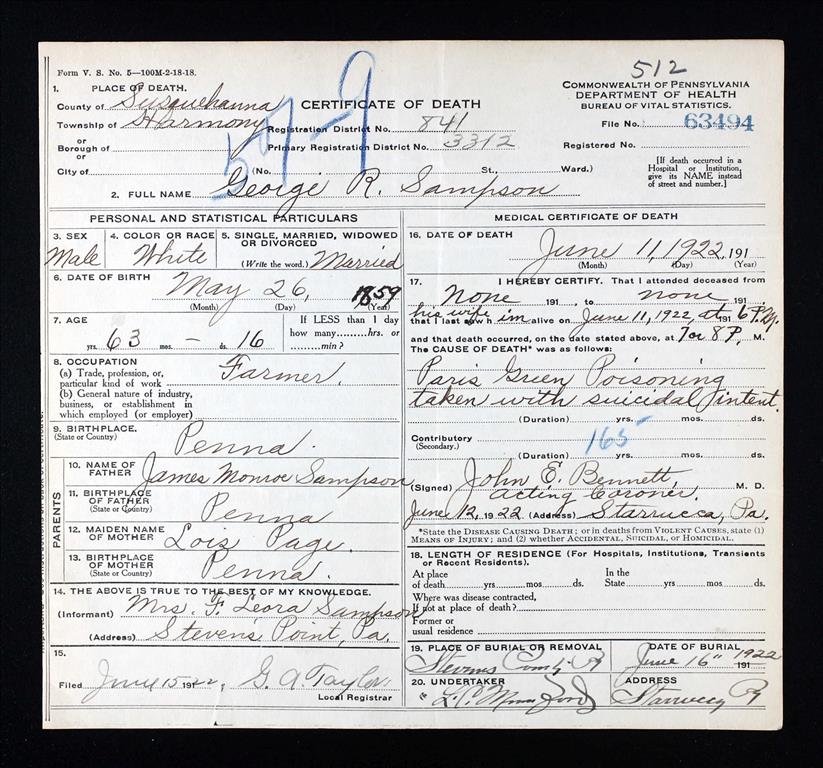 512
Form V. S. No. 5—100M-2-18-18.
1. PLACE OF DEATH.
County of Susquehanna
Township of Harmony
or
Borough of
or
City of
CERTIFICATE OF DEATH
57-9
Registration District No. 841
Primary Registration District No. 3312
(No. St., Ward.)
COMMONWEALTH OF PENNSYLVANIA
DEPARTMENT OF HEALTH
BUREAU OF VITAL STATISTICS.
File No. 63494
Registered No.
[If death occurred in a
Hospital or Institution,
give its NAME instead
of street and number.]
2. FULL NAME George R. Sampson
PERSONAL AND STATISTICAL PARTICULARS
3. SEX
Male
4. COLOR OR RACE
White
5. SINGLE, MARRIED, WIDOWED
OR DIVORCED
(Write the word.) Married
6. DATE OF BIRTH
May 26, 1859
(Month) (Day) (Year)
7. AGE
yrs. 63 mos. – ds. 16
If LESS than 1 day
how many.........hrs. or
.........min?
8. OCCUPATION
(a) Trade, profession, or,
particular kind of work Farmer.
(b) General nature of industry,
business, or establishment in
which employed (or employer)
9. BIRTHPLACE.
(State or Country) Penna.
PARENTS
10. NAME OF
FATHER James Monroe Sampson
11. BIRTHPLACE
OF FATHER
(State or Country) Penna
12. MAIDEN NAME
OF MOTHER Lois Page.
13. BIRTHPLACE
OF MOTHER
(State or Country) Penna.
14. THE ABOVE IS TRUE TO THE BEST OF MY KNOWLEDGE.
(Informant) Mrs. F. Leora Sampson
(Address) Stevens Point, Pa.
15.
Filed June 15 1922, G. A. Taylor
Local Registrar
MEDICAL CERTIFICATE OF DEATH
16. DATE OF DEATH
June 11, 1922, 191
(Month) (Day) (Year)
17. I HEREBY CERTIFY. That I attended deceased from
none 191 to none 191
his wife
that I last saw h im alive on June 11, 1922, at 191 6 P.M.
and that death occurred, on the date stated above, at 7 or 8 P. M.
The CAUSE OF DEATH* was as follows:
Paris Green Poisoning
taken with suicidal intent.
(Duration) yrs. mos. ds.
Contributory
(Secondary.)
165
(Duration) yrs. mos. ds.
(Signed) John E. Bennett, M. D.
acting Coroner.
June 12, 1922 (Address) Starrucca, Pa.
*State the DISEASE CAUSING DEATH; or in deaths from VIOLENT CAUSES, state (1)
MEANS OF INJURY; and (2) whether ACCIDENTAL, SUICIDAL, or HOMICIDAL.
18. LENGTH OF RESIDENCE (For Hospitals, Institutions, Transients
or Recent Residents).
At place
of death yrs. mos. ds.
In the
State yrs. mos. ds.
Where was disease contracted,
If not at place of death?
Former or
usual residence
19. PLACE OF BURIAL OR REMOVAL
Stevens
DATE OF BURIAL
June 16" 1922
191
20. UNDERTAKER
ADDRESS
Starrucca